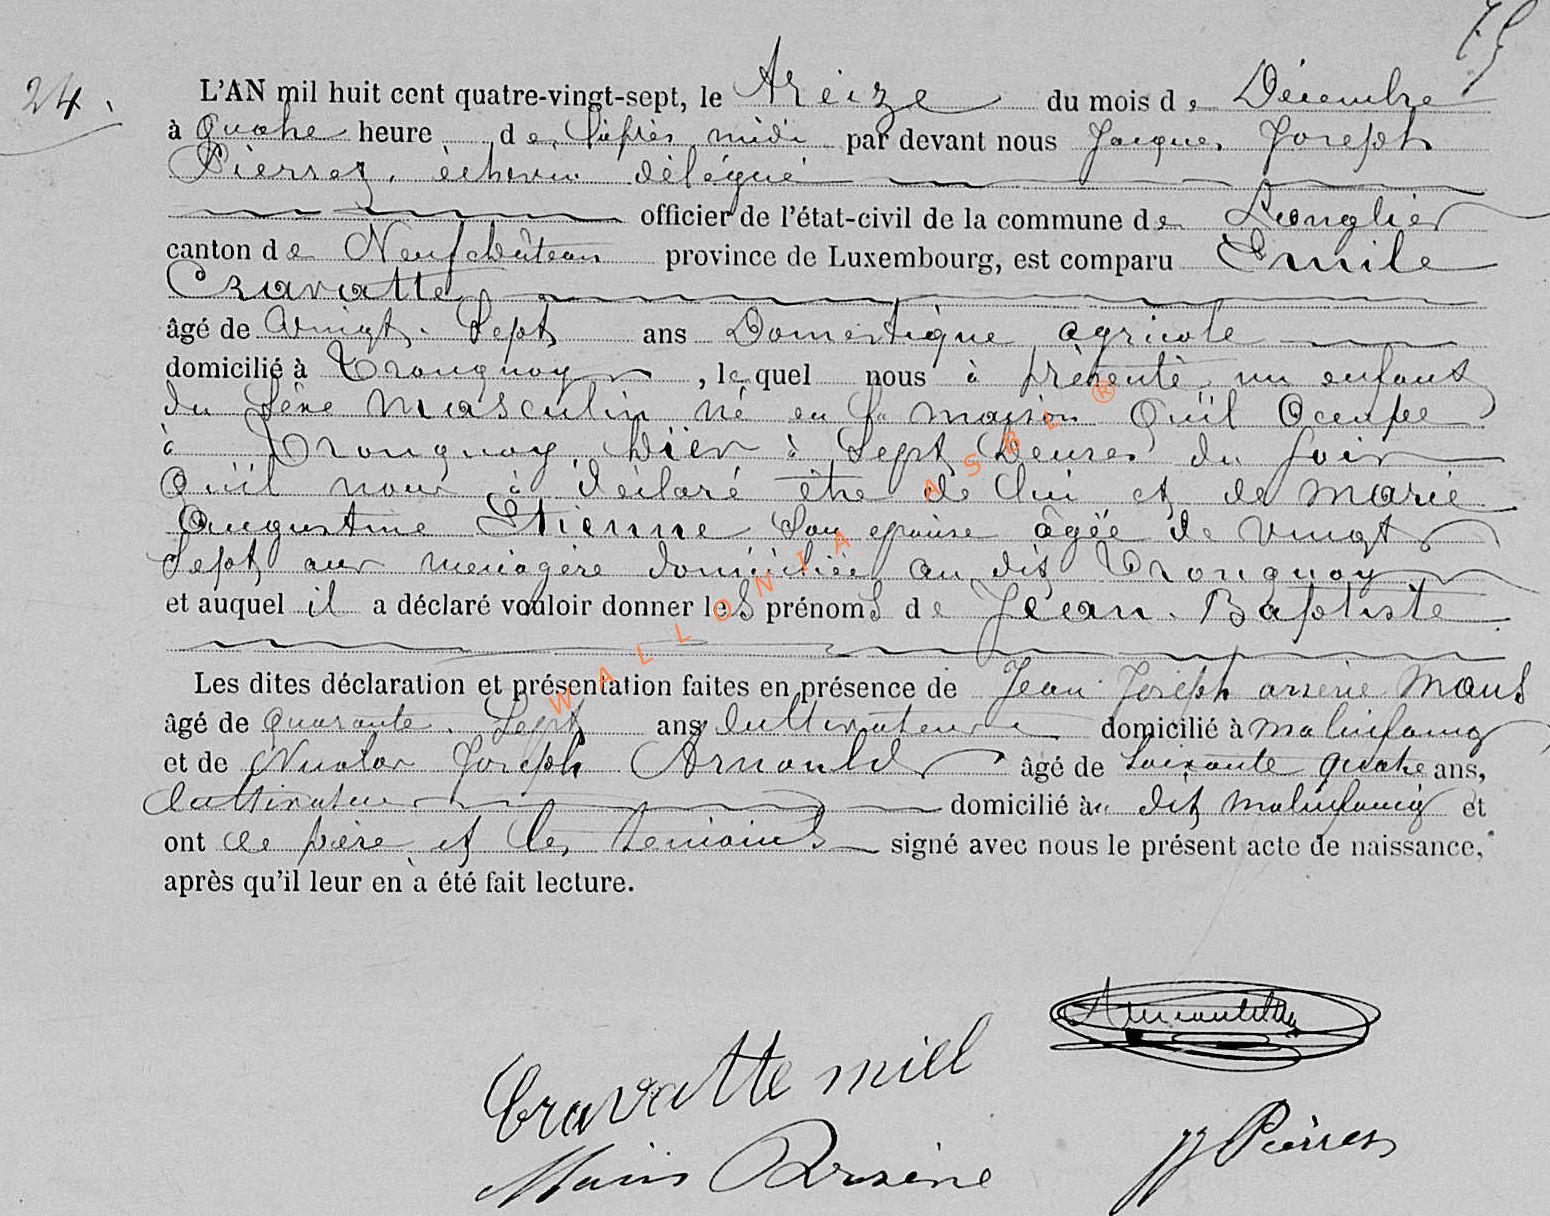 75
24.
L'AN mil huit cent quatre-vingt-sept, le treize du mois de Décembre
à quatre heure de l'après midi par devant nous Jacques Joseph
Pierrez, échevin délégué
officier de l'état-civil de la commune de Longlier
canton de Neufchâteau province de Luxembourg, est comparu Emile
Cravatte
âgé de vingt-Sept ans Domestique agricole
domicilié à Tronquoy, lequel nous à présenté un enfant
du Sexe masculin né en la maison Qu'il Occupe
à Tronquoy, hier à Sept heures du Soir
Qu'il nous à déclaré être de lui et de Marie
Augustine Etienne Son épouse âgée de vingt
Sept ans menagère domiciliée au dit Tronquoy
et auquel il a déclaré vouloir donner les prénoms de Jean-Baptiste
Les dites déclaration et présentation faites en présence de Jean Joseph arsène Maus
âgé de quarante-Sept ans Cultivateur domicilié à malinfaing
et de Nicolas Joseph Arnould âgé de Soixante quatre ans,
Cultivateur domicilié au dit malinfaing et
ont le père et les témoins signé avec nous le présent acte de naissance,
après qu'il leur en à été fait lecture.
Arnould
Cravatte miel
Maus Arsène
JJ Pierrez
WALLONIA ASBL ®